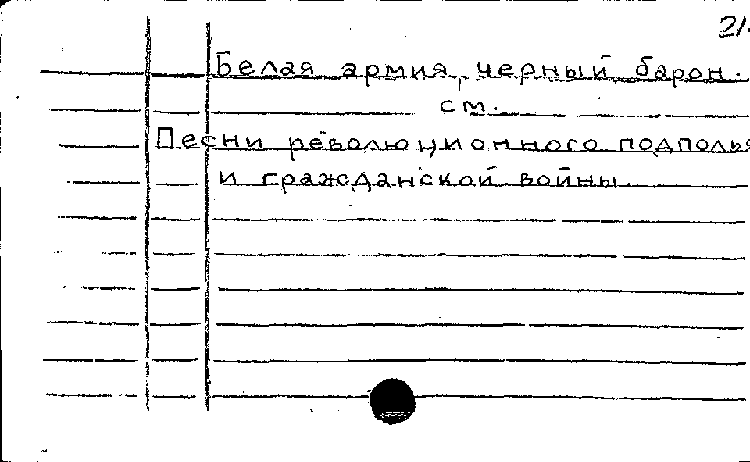 21
Белая армия, черный барон.
см.
Песни революционного подполья
и гражданской войны